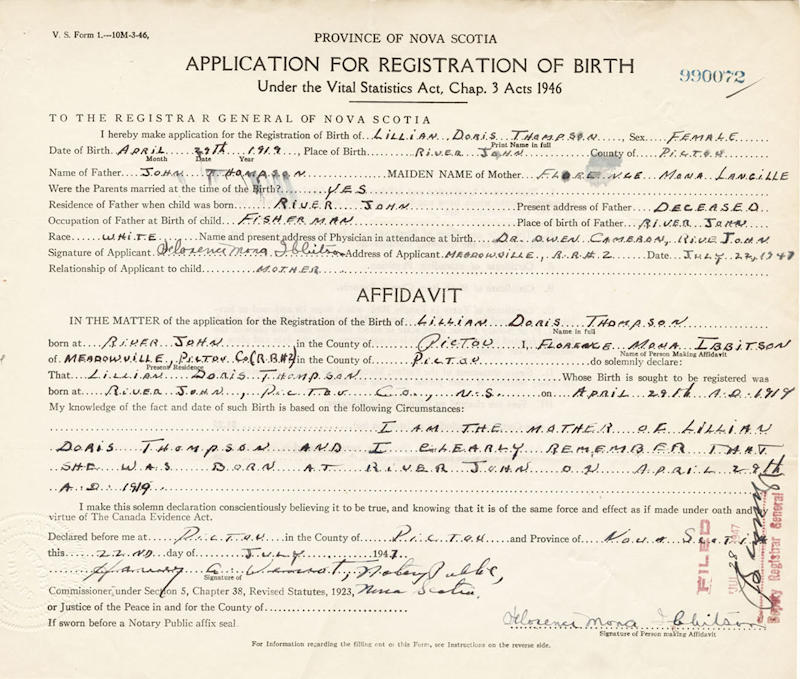 V. S. Form 1.—10M-3-46,
PROVINCE OF NOVA SCOTIA
APPLICATION FOR REGISTRATION OF BIRTH
990072
Under the Vital Statistics Act, Chap. 3 Acts 1946
TO THE REGISTRAR GENERAL OF NOVA SCOTIA
I hereby make application for the Registration of Birth of LILLIAN DORIS THOMPSON, Sex FEMALE
Print Name in full
Date of Birth APRIL 29th 1919, Place of Birth RIVER JOHN County of PICTOU
Month Date Year
Name of Father JOHN THOMPSON MAIDEN NAME of Mother FLORENCE MONA LANGILLE
Were the Parents married at the time of the Birth? YES
Residence of Father when child was born RIVER JOHN Present address of Father DECEASED
Occupation of Father at Birth of child FISHERMAN Place of birth of Father RIVER JOHN
Race WHITE Name and present address of Physician in attendance at birth DR. OWEN CAMERON, RIVE JOHN
Signature of Applicant Florence Mona Ibbitson Address of Applicant MEADOWVILLE, R.R.#2 Date JULY 22, 1947
Relationship of Applicant to child MOTHER
AFFIDAVIT
IN THE MATTER of the application for the Registration of the Birth of LILLIAN DORIS THOMPSON
Name in full
born at RIVER JOHN in the County of PICTOU I, FLORENCE MONA IBBITSON
Name of Person Making Affidavit
of MEADOWVILLE, PICTOU CO. (R.R.#2) in the County of PICTOU do solemnly declare:
Present Residence
That LILLIAN DORIS THOMPSON Whose Birth is sought to be registered was
born at RIVER JOHN, PICTOU CO., N.S. on APRIL 29th A.D. 1919
My knowledge of the fact and date of such Birth is based on the following Circumstances:
I AM THE MOTHER OF LILLIAN
DORIS THOMPSON AND I CLEARLY REMEMBER THAT
SHE WAS BORN AT RIVER JOHN ON APRIL 29th
A.D. 1919
I make this solemn declaration conscientiously believing it to be true, and knowing that it is of the same force and effect as if made under oath and
virtue of The Canada Evidence Act.
Declared before me at PICTOU in the County of PICTOU and Province of NOVA SCOTIA
this 22ND day of JULY 1947.
Notary Public,
Signature of
Commissioner under Section 5, Chapter 38, Revised Statutes, 1923, Nova Scotia.
or Justice of the Peace in and for the County of
If sworn before a Notary Public affix seal
Florence Mona Ibbitson
Signature of Person making Affidavit
FILED
JUL 28 1947
Deputy Registrar General
For Information regarding the filling out of this Form, see Instructions on the reverse side.